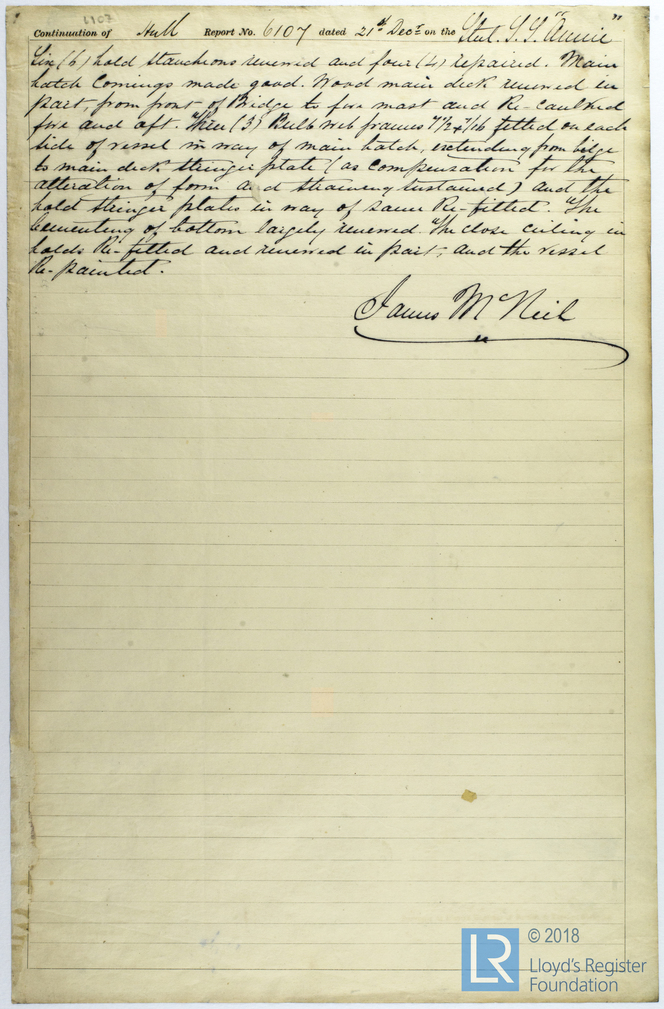 6107
Continuation of Hull Report No. 6107 dated 21st Decr on the Stul. S.S. "Annie"
Six (6) hold stanchions renewed and four (4) repaired. Main
hatch Comings made good. Wood main deck renewed in
part, from front of Bridge to fore mast and Re-Caulked
fore and aft. Three (3) Bulb web frames 7 1/2 x 7/16 fitted, on each
side of vessel in way of main hatch, extending from bilge
to main deck stringer plate (as Compensation for the
alteration of form and straining sustained) and the
hold stringer plates in way of same Re-fitted. The
Cementing of bottom largely renewed. The close ceiling in
holds Re-fitted and renewed in part, and the vessel
Re-painted.
James McNeil
LR
© 2018
Lloyd's Register
Foundation